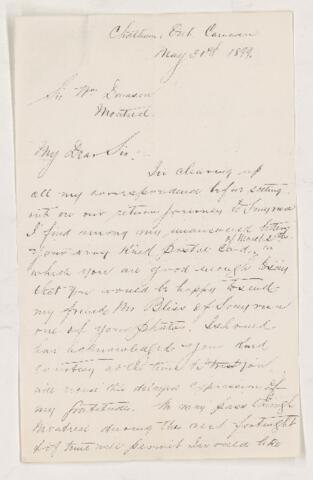 Chatham, Ont. Canada
May 31st 1899.
Sir Wm Dawson
Montreal.
My Dear Sir:
In clearing up
all my correspondence before setting
out on our return journey to Smyrna
I find among my unanswered letters
your very kind Postal Card, of March 2 in
which you are good enough to say
that you would be happy to send
my friend Mr Bliss of Smyrna
one of your photos. I should
have acknowledged your kind
courtesy at the time
this delayed expression of
my gratitude. We may pass through
Montreal during the next fortnight
& if time will permit I would like